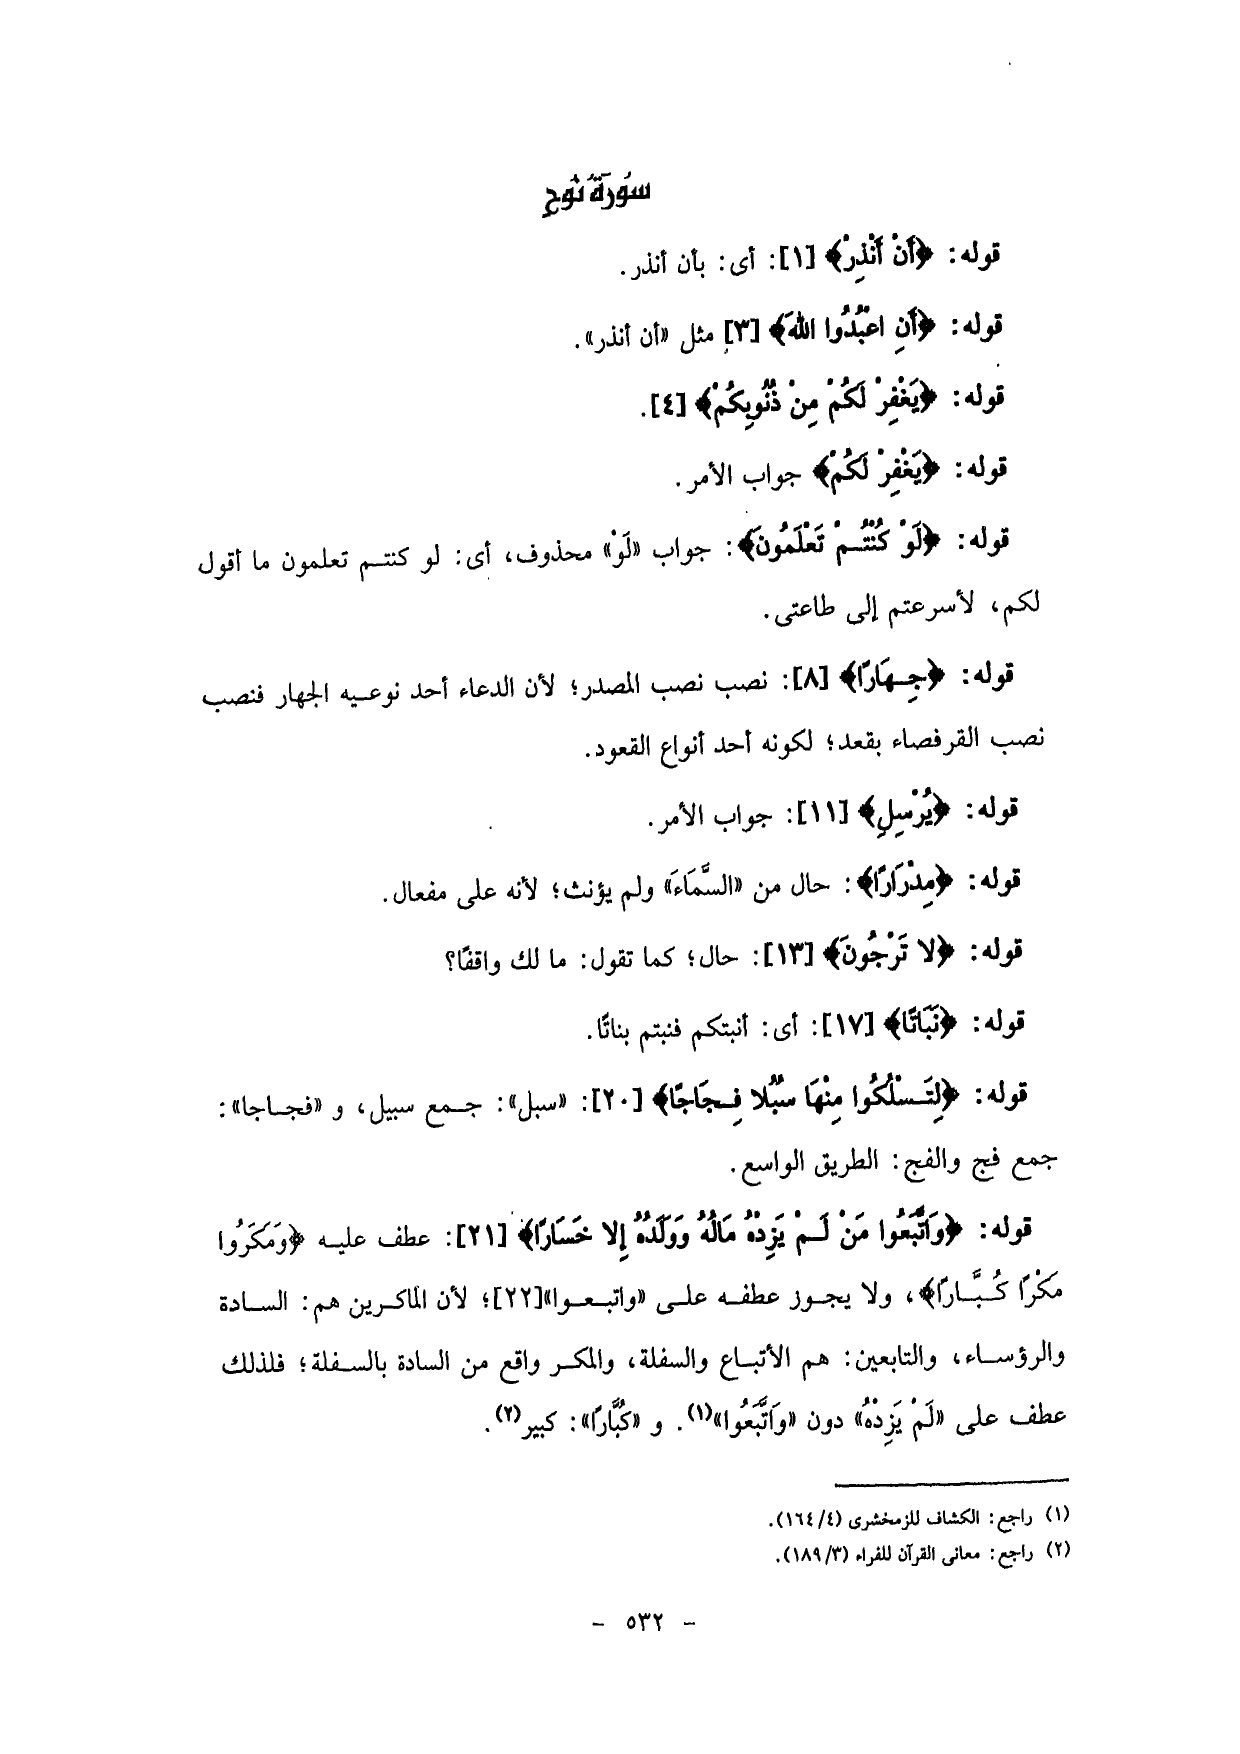 سُورَةُ نُوحٍ
قوله: ﴿أَنْ أَنْذِرْ﴾ [١]: أى: بأن أنذر.
قوله: ﴿أَنِ اعْبُدُوا اللهَ﴾ [٣] مثل «أن أنذر».
قوله: ﴿يَغْفِرْ لَكُمْ مِنْ ذُنُوبِكُمْ﴾ [٤].
قوله: ﴿يَغْفِرْ لَكُمْ﴾ جواب الأمر.
قوله: ﴿لَوْ كُنْتُمْ تَعْلَمُونَ﴾: جواب «لَوْ» محذوف، أى: لو كنتم تعلمون ما أقول
لكم، لأسرعتم إلى طاعتى.
قوله: ﴿جِهَارًا﴾ [٨]: نصب نصب المصدر؛ لأن الدعاء أحد نوعيه الجهار فنصب
نصب القرفصاء بقعد؛ لكونه أحد أنواع القعود.
قوله: ﴿يُرْسِلِ﴾ [١١]: جواب الأمر.
قوله: ﴿مِدْرَارًا﴾: حال من «السَّمَاءَ» ولم يؤنث؛ لأنه على مفعال.
قوله: ﴿لا تَرْجُونَ﴾ [١٣]: حال؛ كما تقول: ما لك واقفًا؟
قوله: ﴿نَبَاتًا﴾ [١٧]: أى: أنبتكم فنبتم بناتًا.
قوله: ﴿لِتَسْلُكُوا مِنْهَا سُبُلا فِجَاجًا﴾ [٢٠]: «سبل»: جمع سبيل، و «فجاجا»:
جمع فج والفج: الطريق الواسع.
قوله: ﴿وَاتَّبَعُوا مَنْ لَمْ يَزِدْهُ مَالُهُ وَوَلَدُهُ إِلا خَسَارًا﴾ [٢١]: عطف عليه ﴿وَمَكَرُوا
مَكْرًا كُبَّارًا﴾، ولا يجوز عطفه على «واتبعوا»[٢٢]؛ لأن الماكرين هم: السادة
والرؤساء، والتابعين: هم الأتباع والسفلة، والمكر واقع من السادة بالسفلة؛ فلذلك
عطف على «لَمْ يَزِدْهُ» دون «وَاتَّبَعُوا»(١). و «كُبَّارًا»: كبير(٢).
(١) راجع: الكشاف للزمخشرى (١٦٤/٤).
(٢) راجع: معانى القرآن للفراء (١٨٩/٣).
- ٥٣٢ -